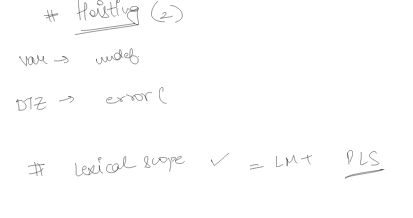 # Hoisting (2)
var → undef
DTZ → error (
# Lexical scope ✓ = LM + PLS